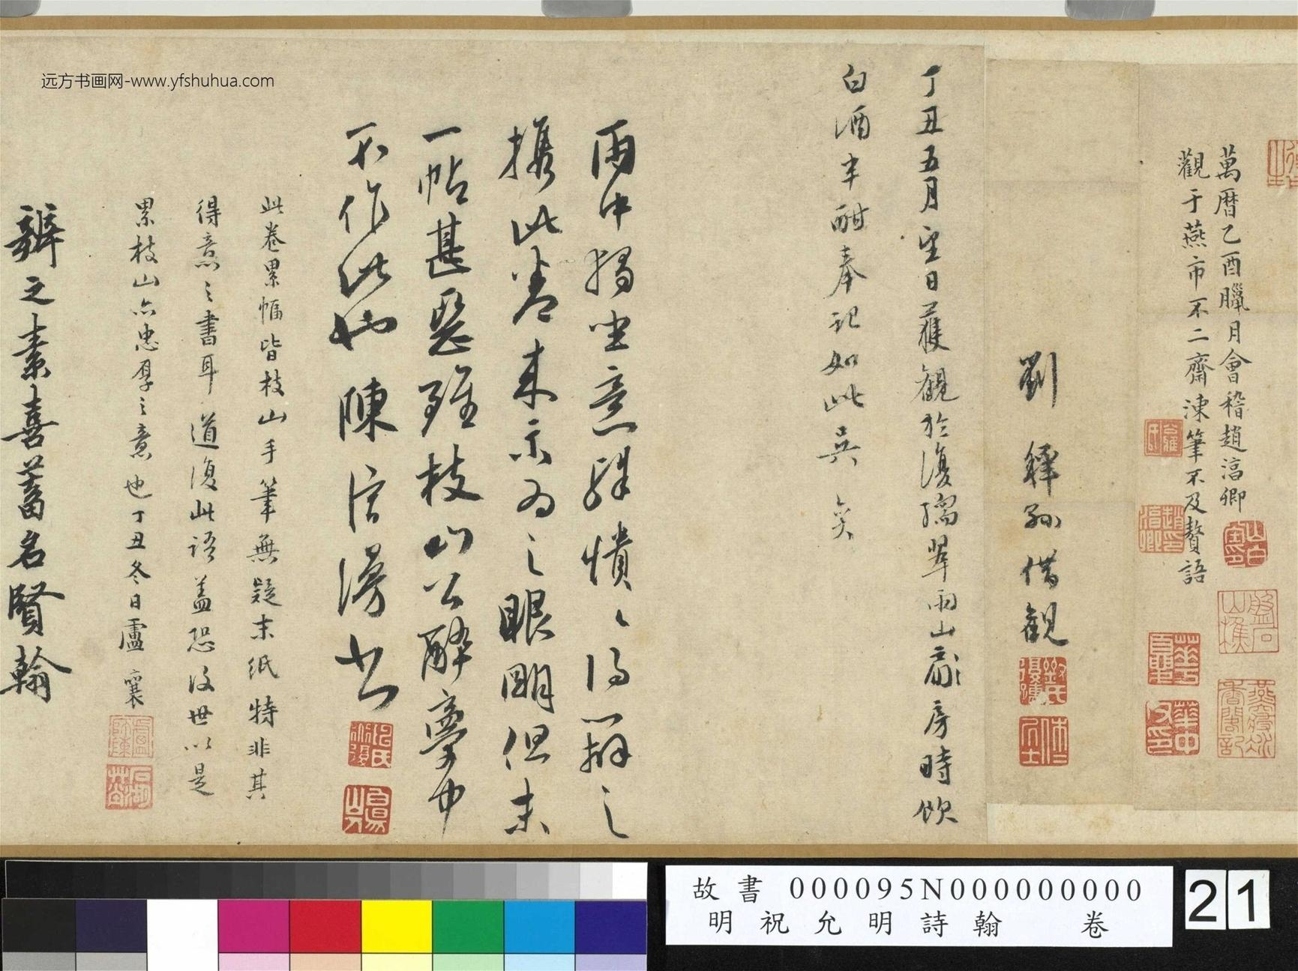 远方书画网-www.yfshuhua.com
萬曆乙酉臘月會稽趙淓卿
觀于燕市不二齋凍筆不及贅語
劉穉孫借觀
丁丑五月望日獲觀於復孺翠雨山房時飲
白酒半酣奉記如此吳奕
雨中獨坐意殊憒〻得辨之
攜此卷來示为之眼明但末
一帖甚惡雖枝山公醉夢中
不作此也陳淳漫书
此卷累幅皆枝山手筆無疑末紙特非其
得意之書耳道復此語盖恐後世以是
累枝山亦忠厚之意也丁丑冬日盧襄
辨之素喜蓄名賢翰
故書 000095N000000000
明祝允明詩翰 卷
21